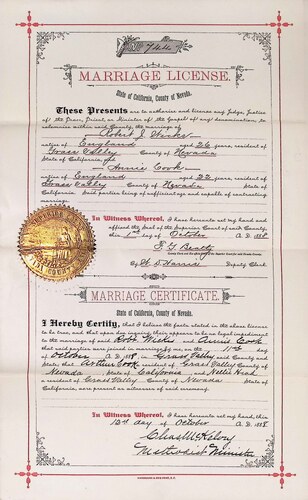 No 744
MARRIAGE LICENSE.
State of California, County of Nevada.
These Presents are to authorize and license any Judge, Justice
of the Peace, Priest, or Minister of the Gospel of any denomination, to
solemnize within said County the marriage of
Robert J
native of England aged 26 years, resident of
Grass Valley County of Nevada
State of California, and
Annie Cook
native of England aged 22 years, resident of
Grass Valley County of Nevada State of
California. Said parties being of sufficient age and capable of contracting
marriage.
In Witness Whereof, I have hereunto set my hand and
affixed the Seal of the Superior Court of said County,
this day of October A. D. 1888
Deputy Clerk
MARRIAGE CERTIFICATE.
State of California, County of Nevada.
I Hereby Certify, that I believe the facts stated in the above license
to be true, and that upon due inquiry there appears to be no legal impediment
to the marriage of said Robt and Annie Cook
that said parties were joined in marriage by me, on the day of
October A. D. 1888, in Grass Valley said County and
State; that Arthur Cook a resident of Grass Valley County of
Nevada State of California and Nellie
a resident of Grass Valley County of Nevada State of
California, were present as witnesses of said ceremony.
In Witness Whereof, I have hereunto set my hand, this
day of October A. D. 1888.
Chas McKelvy
Methodist Minister